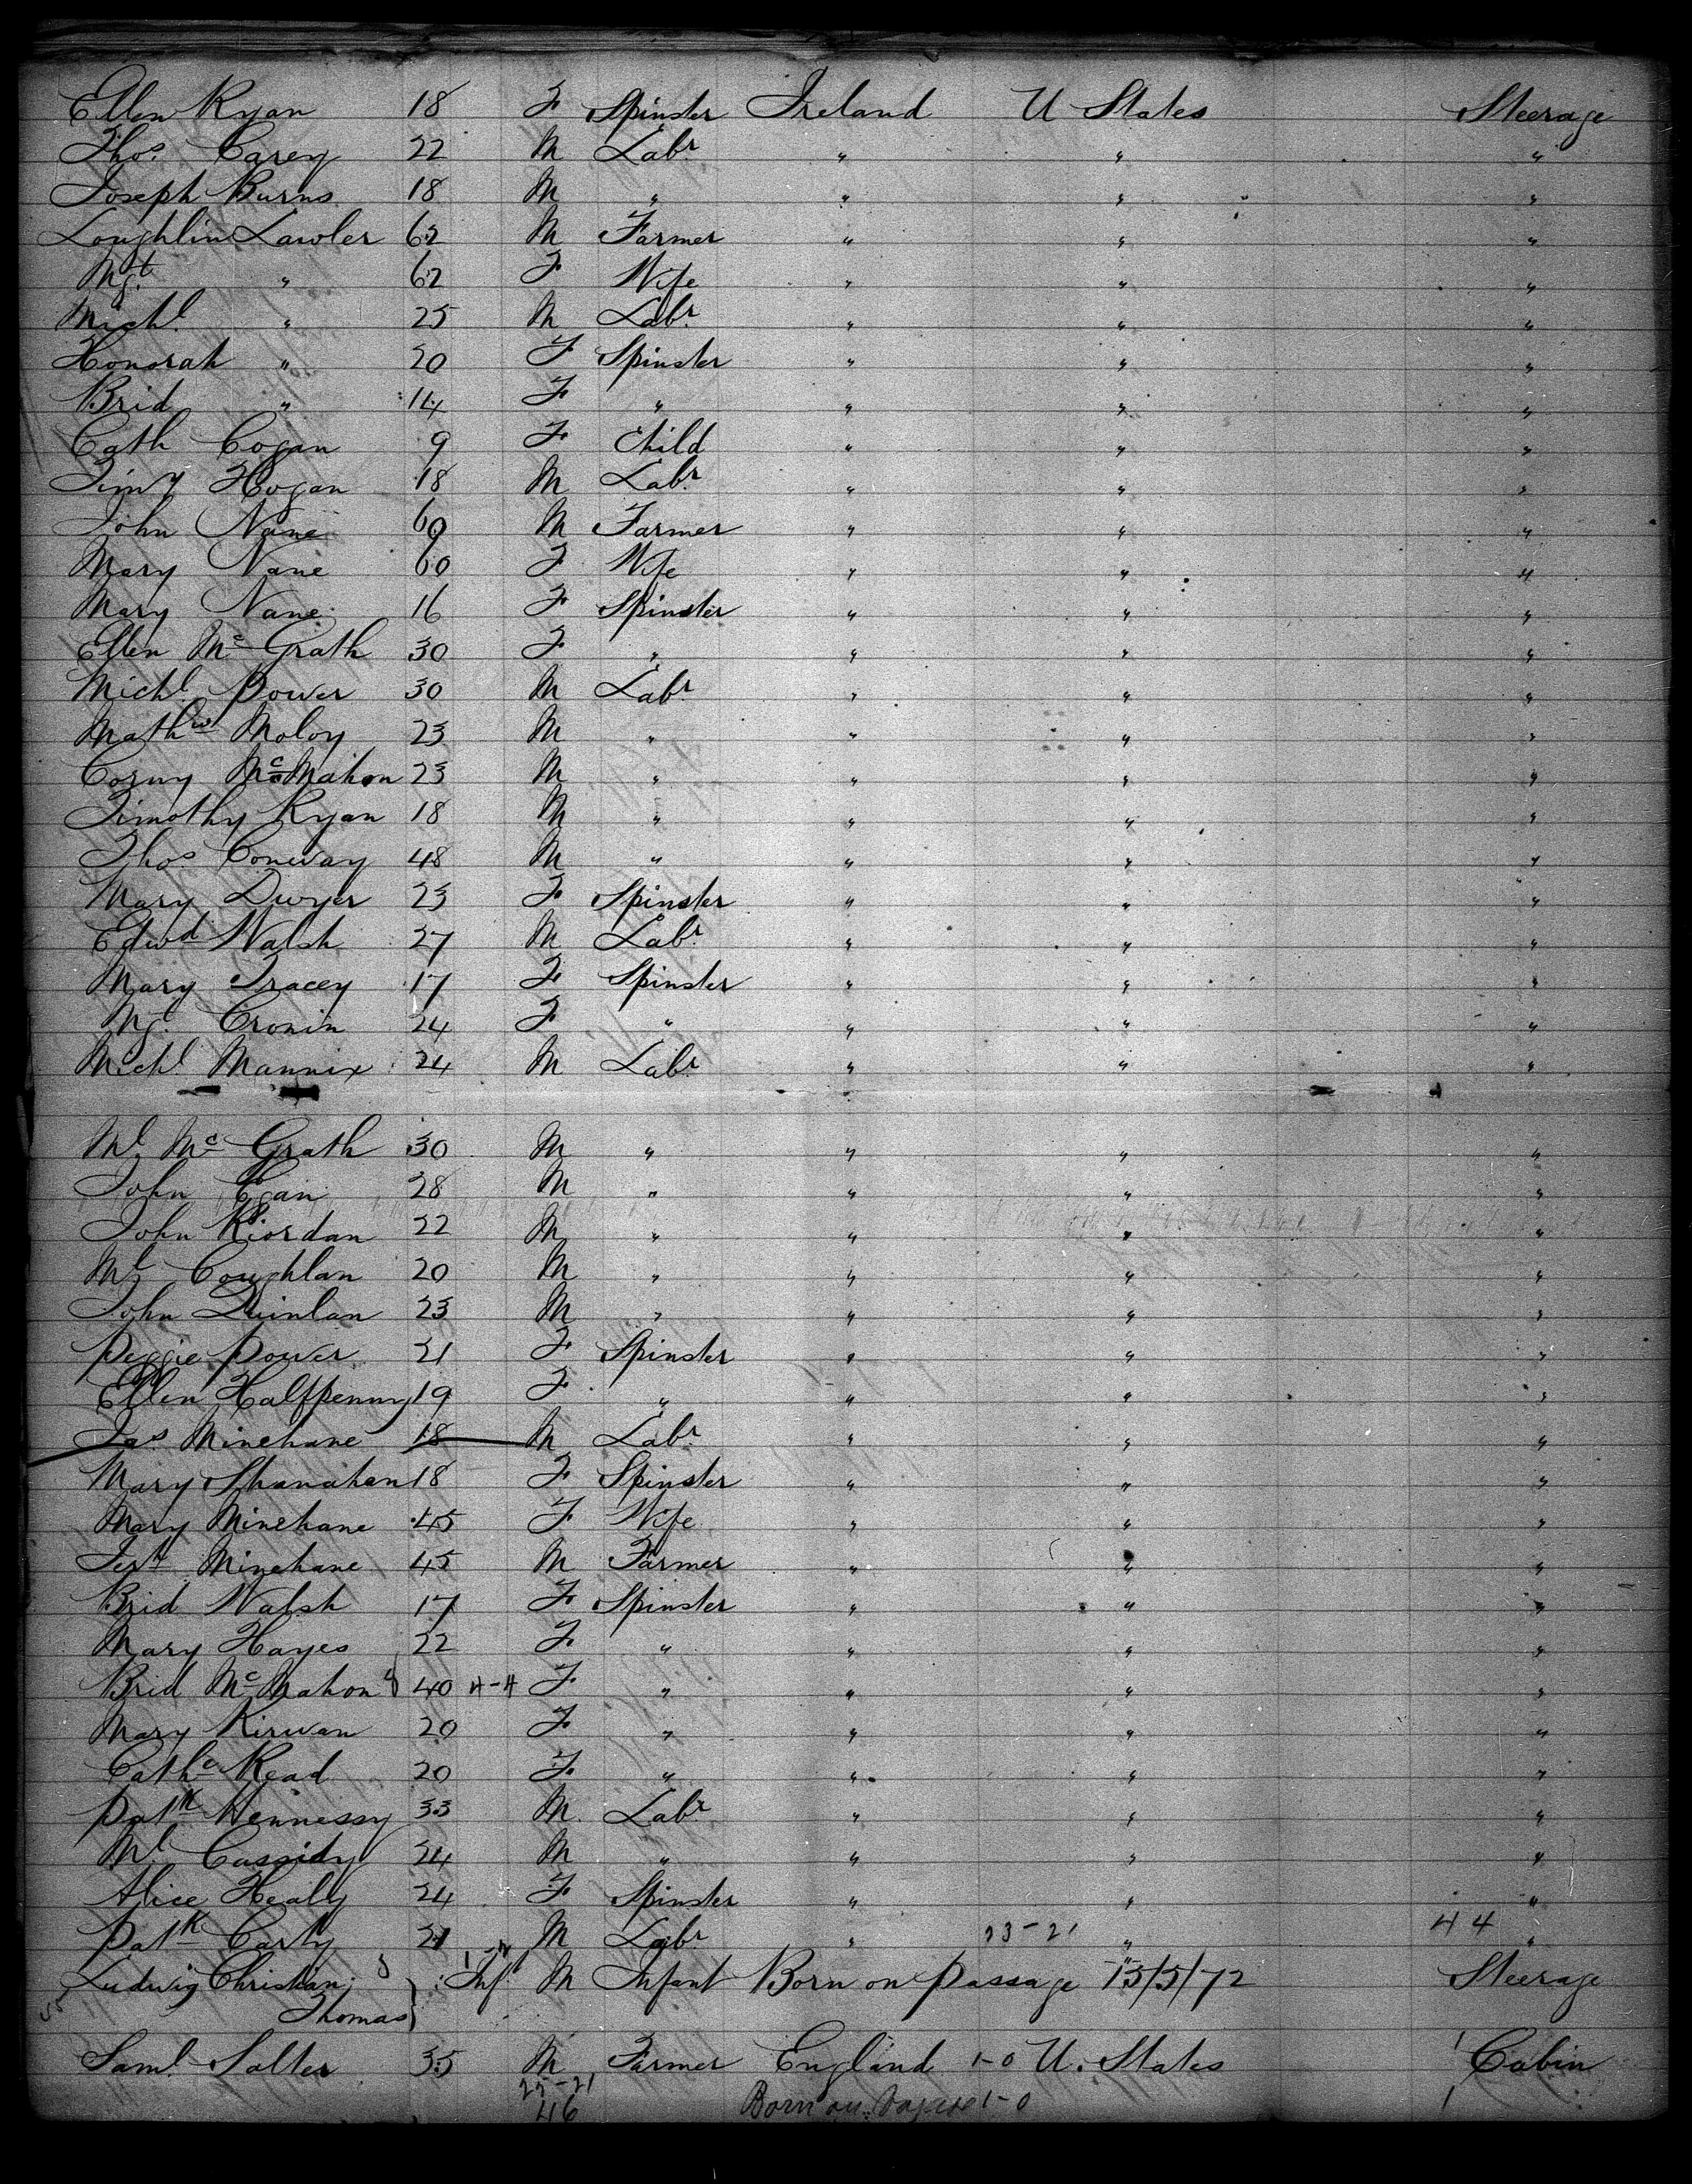 Ellen Ryan 18 F Spinster Ireland U States Steerage
Thos Carey 22 M Labr " " "
Joseph Burns 18 M " " " "
Loughlin Lawler 62 M Farmer " " "
Mgt " 62 F Wife " " "
Michl " 25 M Labr " " "
Honorah " 20 F Spinster " " "
Brid " 14 F " " " "
Cath Cogan 9 F Child " " "
Timy Hogan 18 M Labr " " "
John Nane 60 M Farmer " " "
Mary Nane 60 F Wife " " "
Mary Nane 16 F Spinster " " "
Ellen Mc Grath 30 F " " " "
Michl Power 30 M Labr " " "
Mathw Moloy 23 M " " " "
Corny McMahon 23 M " " " "
Timothy Ryan 18 M " " " "
Thos Conway 48 M " " " "
Mary Dwyer 23 F Spinster " " "
Edwd Walsh 27 M Labr " " "
Mary Tracey 17 F Spinster " " "
Mg. Cronin 24 F " " " "
Michl Mannix 24 M Labr " " "
Ml Mc Grath 30 M " " " "
John Egan 28 M " " " "
John Riordan 22 M " " " "
Coughlan 20 M " " " "
John Quinlan 23 M " " " "
Peggie Power 21 F Spinster " " "
Ellen Halfpenny 19 F " " " "
Jas Minehane 18 M Labr " " "
Mary Shanahan 18 F Spinster " " "
Mary Minehane 45 F Wife " " "
Minehane 45 M Farmer " " "
Brid Walsh 17 F Spinster " " "
Mary Hayes 22 F " " " "
Brid McMahon 40 F " " " "
Mary Kirwan 20 F " " " "
Cathe Read 20 F " " " "
Patk Hennessy 33 M Labr " " "
Ml Cassidy 24 M " " " "
Alice Healy 24 F Spinster " " "
Patk Carty 21 M Labr " 23-21 " 44 "
Ludwig Christian Inft M Infant Born on Passage 13/5/72 Steerage
Thomas
Saml Salter 35 M Farmer England 1-0 U. States 1 Cabin
25-21
46 Born on 1-0 1